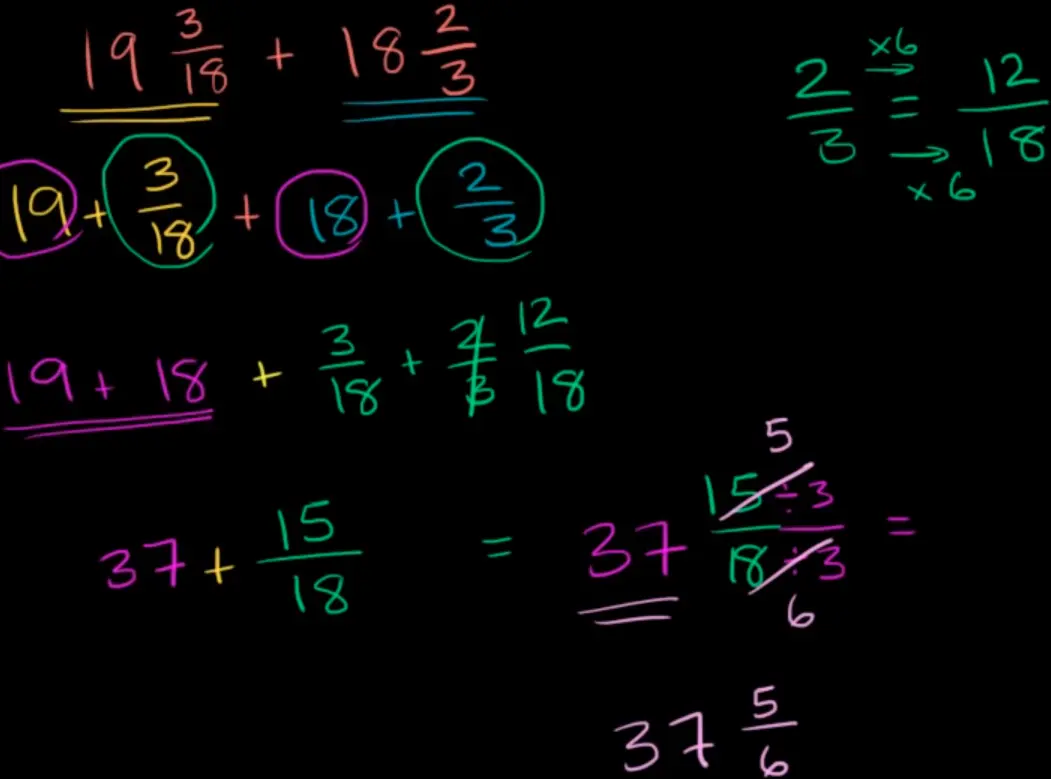 19 3/18 + 18 2/3
19 + 3/18 + 18 + 2/3
2/3 = 12/18
×6 →
→ ×6
19 + 18 + 3/18 + 2/3 12/18
37 + 15/18 = 37 15÷3/18÷3 =
5
6
37 5/6